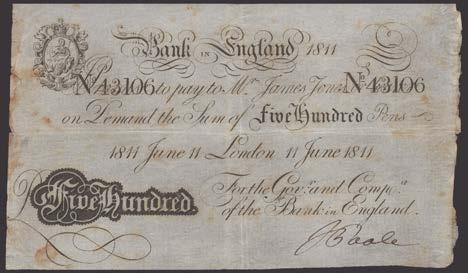 Bank in England 1811
No 43106 to pay to Mr. James Jones No 43106
on Demand the Sum of Five Hundred Pens
1811 June 11 London 11 June 1811
For the Govr. and Compa.
Five Hundred of the Bank in England.